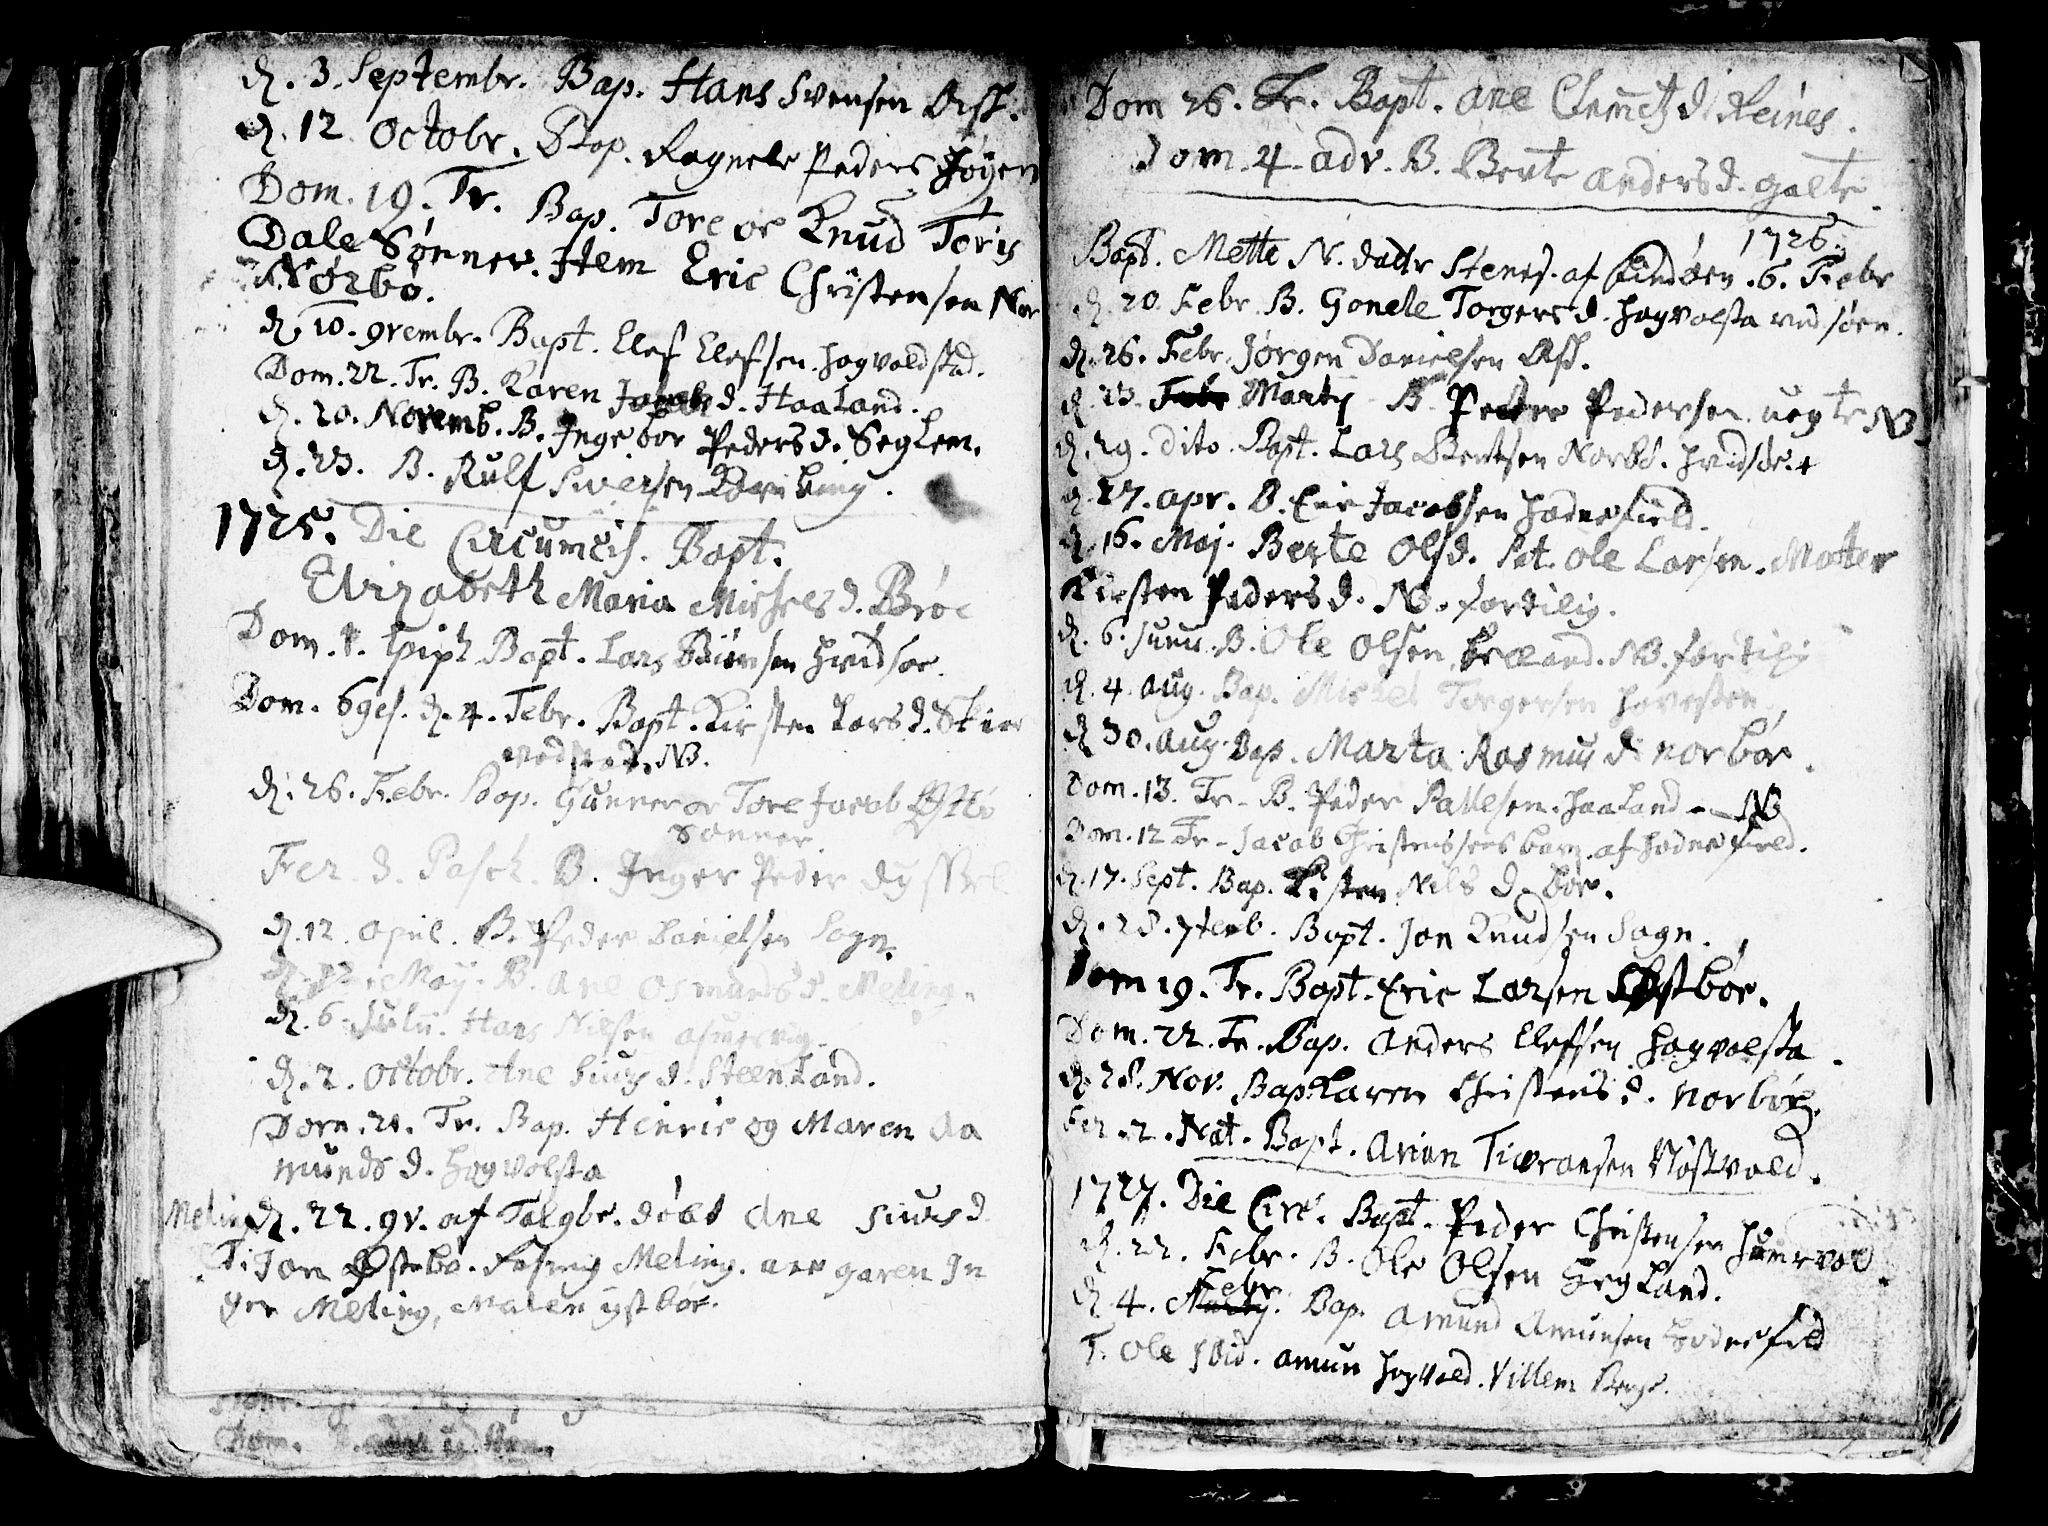 d. 3. Septembr. Bap. Hans Svensen Ask.
d. 12 Octobr. Bap. Ragnele Peders Høyen
Dom. 19. Tr. Bap. Tore oc Knud Toris
Dale Sønner. Item Eric Christensen Nor
Nørbø.
d. 10. 9vembr. Bapt. Elef Elefsen. Hogvoldstad.
Dom. 22. Tr. B. Karen Jacobs d. Haaland.
d. 20. Novemb. B. Ingebor Peders d. Seglem.
d. 23. B. Rulf Siversen
1725. Die Circumcis. Bapt.
Elizabeth Maria Michels d. Broe
Dom. 1. Epiph. Bapt. Lars Biørnsen Hvidsøe.
Dom. 6ges. d. 4. Febr. Bapt. Kirsten Lars d. Skier
vedsted. NB.
d. 26. Febr. Bap. Gunner oc Tore Jacob Østbø
Sønner.
Fer. d. Pasch. B. Inger Peder
d. 12. April. B. Peder Danielsen Sogn.
d. May. B. Ane Osmunds d. Meling.
d. 6. Julii. Hans Nilsen Asmervig.
d. 2. Octobr. Ane Siurs d. Steenland.
Dom. 21. Tr. Bap. Henric og Maren Aa
munds d. Hogvolsta
Meling d. 22. 9v. af Talgbr. døbt Ane Siurs d.
T. Jon Østebø. Meling. Ane Garen In
ger Meling, Malen ystbøe.
Dom 26. Tr. Bapt. Ane Clemets d. Reines.
Dom. 4. adv. B. Berte Anders d. Galte.
1726.
Bapt. Mette N. datter Stenes. af 6. Febr
d. 20. Febr. B. Gonele Torgers d. Hogvolsta ved søen.
d. 26. Febr. Jørgen Danielsen Ask.
d. 23. Febr Martij B. Peder Pedersen NB
d. 29. dito. Bapt. Lars Bentsen Norbø. Hvidsøe. +
d. 27. apr. B. Eric Jacobsen Hodnefield.
d. 16. Maj. Berte Ols d. Pat. Ole Larsen. Mater
Kirsten Peders d. NB. for tilig.
d. 6. Junii. B. Ole Olsen NB. for tilig
d. 4. Aug. Bap. Michel Torgersen Hovesten.
d. 30. Aug. Bap. Marta Rasmus d. Norbøe.
Dom. 13. Tr. B. Peder Pallesen. Haaland. NB
Dom. 12 Tr. Jacob Christenssens barn. af Hodnefield.
d. 17. Sept. Bap. Kisten Nils d. Bøe.
d. 28. 7temb. Bapt. Jon Knudsen Sogn.
Dom 19. Tr. Bapt. Eric Larsen Østbøe.
Dom. 22. Tr. Bap. Anders Elefsen Hogvolsta.
d. 28. Nov. Bap. Karen Christens d. Norbøe.
Fer. 2. Nat. Bapt. Arian Tiøransen Nøstvold.
1727. Die Circ. Bapt. Peder Christensen Humrvol.
d. 22. Febr. B. Ole Olsen Hegland.
Febr
d. 4. Martij. Bap. Amund Amunsen Hodnefield
T. Ole Amun Hogvold. Villem Berge.